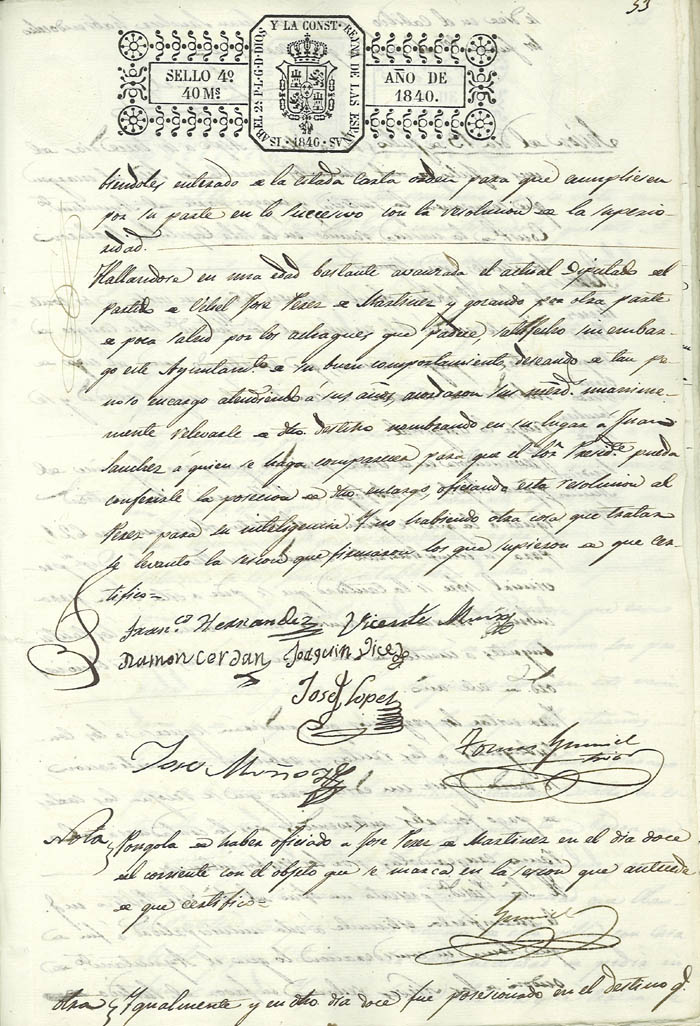 53
ISABEL 2ª P.L.G.D.DIOS Y LA CONST. REYNA DE LAS ESPAÑAS
SELLO 4º
40 Ms
AÑO DE
1840.
1840
biendoles enterado de la citada Carta orden para que cumpliesen
por su parte en lo succesivo con la resolucion de la superio-
ridad.
Hallandose en una edad bastante avanzada el actual Diputado del
partido de José Perez de Martinez y gozando por otra parte
de poca salud por los achaques que padece, satisfecho sin embar-
go este Ayuntamto de su buen comportamiento, deseando a tan pe-
noso encargo atendiendo á sus años, acordaron sus mrds. unanime-
mente relevarle de dho. destino nombrando en su lugar a Juan
Sanchez a quien se haga comparecer para que el Sor. Presidte. pueda
conferirle la posecion de dho. encargo, oficiando esta resolucion al
Perez para su inteligencia. Y no habiendo otra cosa que tratar
se levantó la sesion que firmaron los que supieron de que cer-
tifico=
Franco. Hernandez Vicente Muñoz
Ramon Cerdan Joaquin
Jose Lopez
Jose Muñoz
Tomas
Srio
Nota Pongola de haber oficiado a Jose Perez de Martinez en el dia doce
del corriente con el objeto que se marca en la sesion que antecede
de que certifico=
otra Igualmente y en dho dia doce fue posesionado en el destino q.